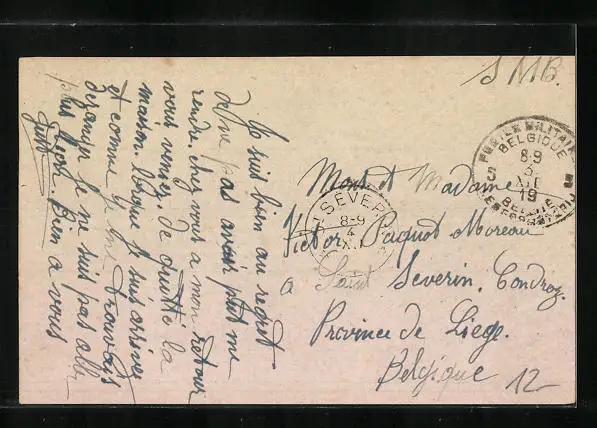 S.M.B.
POSTES MILITAIRES
BELGIQUE
8-9
5
XII
19
BELGIE
5
SEVERIN
8-9
4
XII
Je suis bien au regret
de ne pas avoir peut me
rendre chez vous a mon retour
vous venez de quitté la
maison lorsque je suis arrivé
et comme je me trouvais
dérangé je ne suis pas allé
plus loin. Bien a vous
Mons et Madame
Victor Paquot Moreau
a Saint Severin. Condroz.
Province de Liege.
Belgique
12-